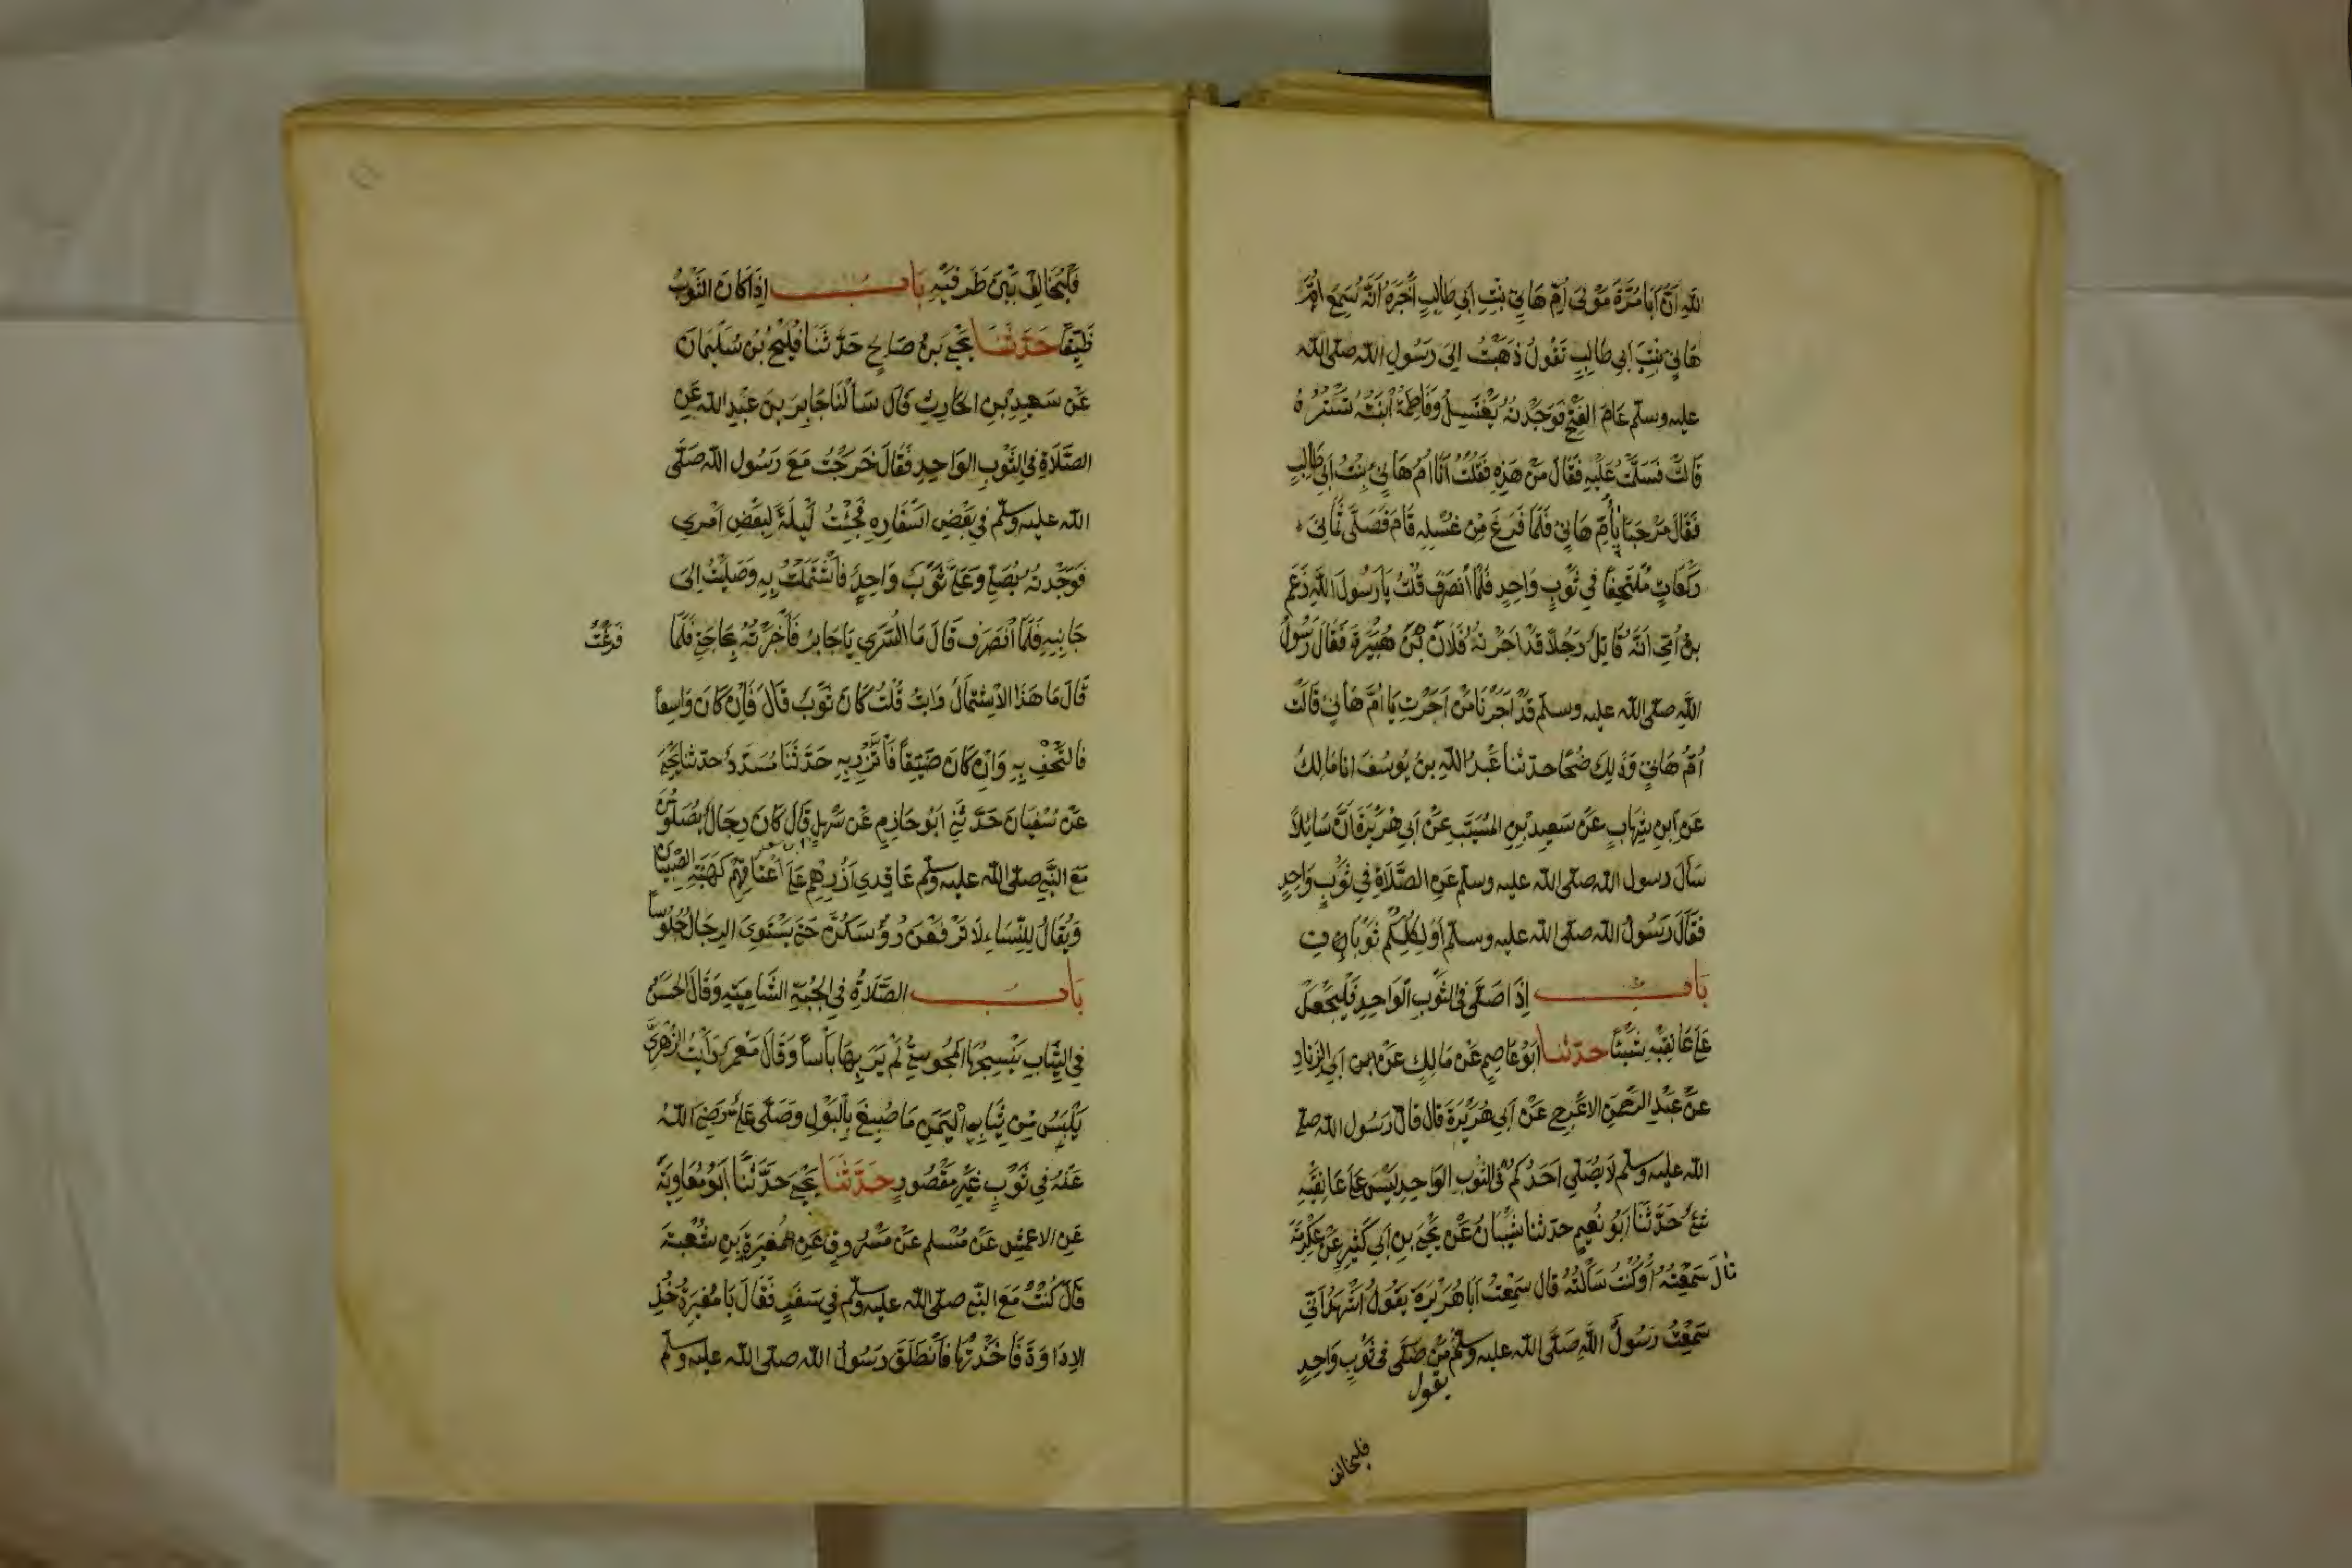 اللهِ أَنَّ أَبَا مُرَّةَ مَوْلَى أُمِّ هَانِئٍ بِنْتِ أَبِي طَالِبٍ أَخْبَرَهُ أَنَّهُ سَمِعَ أُمَّ
هَانِئٍ بِنْتَ أَبِي طَالِبٍ تَقُولُ ذَهَبْتُ إِلَى رَسُولِ اللهِ صلى الله
عليه وسلم عَامَ الفَتْحِ فَوَجَدْتُهُ يَغْتَسِلُ وَفَاطِمَةُ ابْنَتُهُ تَسْتُرُهُ
قَالَتْ فَسَلَّمْتُ عَلَيْهِ فَقَالَ مَنْ هَذِهِ فَقُلْتُ أَنَا أُمُّ هَانِئٍ بِنْتُ أَبِي طَالِبٍ
فَقَالَ مَرْحَبًا بِأُمِّ هَانِئٍ فَلَمَّا فَرَغَ مِنْ غُسْلِهِ قَامَ فَصَلَّى ثَمَانِيَ
رَكَعَاتٍ مُلْتَحِفًا فِي ثَوْبٍ وَاحِدٍ فَلَمَّا انْصَرَفَ قُلْتُ يَا رَسُولَ اللهِ زَعَمَ
بْنُ أُمِّي أَنَّهُ قَاتِلٌ رَجُلًا قَدْ أَجَرْتُهُ فُلَانُ بْنُ هُبَيْرَةَ فَقَالَ رَسُولُ
اللهِ صلى الله عليه وسلم قَدْ أَجَرْنَا مَنْ أَجَرْتِ يَا أُمَّ هَانِئٍ قَالَتْ
أُمُّ هَانِئٍ وَذَلِكَ ضُحًا حدثنا عَبْدُ اللهِ بنُ يُوسُفَ انا مَالِكٌ
عَنِ ابْنِ شِهَابٍ عَنْ سَعِيدِ بْنِ المُسَيَّبِ عَنْ أَبِي هُرَيْرَةَ أَنَّ سَائِلًا
سَأَلَ رسول الله صلى الله عليه وسلم عَنِ الصَّلَاةِ فِي ثَوْبٍ وَاحِدٍ
فَقَالَ رَسُولُ الله صلى الله عليه وسلم أَوَلِكُلِّكُمْ ثَوْبَانِ
بَاب إِذَا صَلَّى فِي الثَّوْبِ الْوَاحِدِ فَلْيَجْعَلْ
عَلَى عَاتِقَيْهِ شَيْئًا حدثنا أَبُو عَاصِمٍ عَنْ مَالِكٍ عَنْ ابن أَبِي الزِّنَادِ
عَنْ عَبْدِ الرَّحْمَنِ الأَعْرَجِ عَنْ أَبِي هُرَيْرَةَ قَالَ قَالَ رَسُول الله صلى
الله عليه وسلم لَا يُصَلِّي أَحَدُكُمْ فِي الثَّوْبِ الوَاحِدِ لَيْسَ عَلَى عَاتِقَيْهِ
شَيْءٌ حَدَّثَنَا أَبُو نُعَيْمٍ حدثنا شَيْبَانُ عَنْ يَحْيَى بنِ أَبِي كَثِيرٍ عَنْ عِكْرِمَةَ
قَالَ سَمِعْتُهُ أَوْ كُنْتُ سَأَلْتُهُ قال سَمِعْتُ أَبَا هُرَيْرَةَ يَقُولُ أَشْهَدُ أَنِّي
سَمِعْتُ رَسُولَ اللَّهِ صَلَّى الله عليه وسلم مَنْ صَلَّى فِي ثَوْبٍ وَاحِدٍ
يقول
فليخالف
فَلْيُخَالِفْ بَيْنَ طَرَفَيْهِ بَاب إِذَا كَانَ الثَّوْبُ
ضَيِّقًا حَدَّثَنَا يَحْيَى بنُ صَالِحٍ حَدَّثَنَا فُلَيْحُ بْنُ سُلَيْمَانَ
عَنْ سَعِيدِ بْنِ الحَارِثِ قَالَ سَأَلْنَا جَابِرَ بنَ عَبْدِ الله عَنِ
الصَّلَاةِ فِي الثَّوْبِ الوَاحِدِ فَقَالَ خَرَجْتُ مَعَ رَسُولِ الله صَلَّى
الله عليه وسلم فِي بَعْضِ أَسْفَارِهِ فَجِئْتُ لَيْلَةً لِبَعْضِ أَمْرِي
فَوَجَدْتُهُ يُصَلِّي وَعَلَيَّ ثَوْبٌ وَاحِدٌ فَاشْتَمَلْتُ بِهِ وَصَلَّيْتُ إِلَى
جَانِبِهِ فَلَمَّا انْصَرَفَ قَالَ مَا السُّرَى يَا جَابِرُ فَأَخْبَرْتُهُ بِحَاجَتِي فَلَمَّا
فَرَغْتُ
قَالَ مَا هَذَا الاشْتِمَالُ قُلْتُ كَانَ ثَوْبٌ قَالَ فَإِنْ كَانَ وَاسِعاً
فَالْتَحِفْ بِهِ وَإِنْ كَانَ ضَيِّقاً فَاتَّزِرْ بِهِ حَدَّثَنَا مُسَدَّدٌ حدثنا يَحْيَى
عَنْ سُفْيَانَ حَدَّثَنِي أَبُو حَازِمٍ عَنْ سَهْلٍ قَالَ كَانَ رِجَالٌ يُصَلُّونَ
مَعَ النَّبِيِّ صلى الله عليه وسلم عَاقِدِي أُزُرِهِمْ عَلَى أَعْنَاقِهِمْ كَهَيْئَةِ الصِّبْيَانِ
وَيُقَالُ لِلنِّسَاءِ لَا تَرْفَعْنَ رُؤُسَكُنَّ حَتَّى يَسْتَوِيَ الرِجَالُ جُلُوساً
بَاب الصَّلَاةِ فِي الجُبَّةِ الشَّامِيَّةِ وَقَالَ الحَسَنُ
فِي الثِّيَابِ يَنْسِجُهَا الْمَجُوسِيُّ لَمْ يَرَ بِهَا بَأْساً وَقَالَ مَعْمَرٌ رَأَيْتُ الزُّهْرِيَّ
يَلْبَسُ مِنْ ثِيَابِ الْيَمَنِ مَا صُبِغَ بِالْبَوْلِ وَصَلَّى عَلِيٌّ رَضِيَ اللهُ
عَنْهُ فِي ثَوْبٍ غَيْرِ مَقْصُورٍ حَدَّثَنَا يَحْيَى حَدَّثَنَا أَبُو مُعَاوِيَةَ
عَنِ الاعمشِ عَنْ مُسْلِمٍ عَنْ مَسْرُوقٍ عَنِ المُغِيرَةِ بْنِ شُعْبَةَ
قَالَ كُنْتُ مَعَ النَّبِي صلى الله عليه وسلم فِي سَفَرٍ فَقَالَ يَا مُغِيرَةُ خُذِ
الإِدَاوَةَ فَأَخَذْتُهَا فَانْطَلَقَ رَسُولُ الله صلى الله عليه وسلم